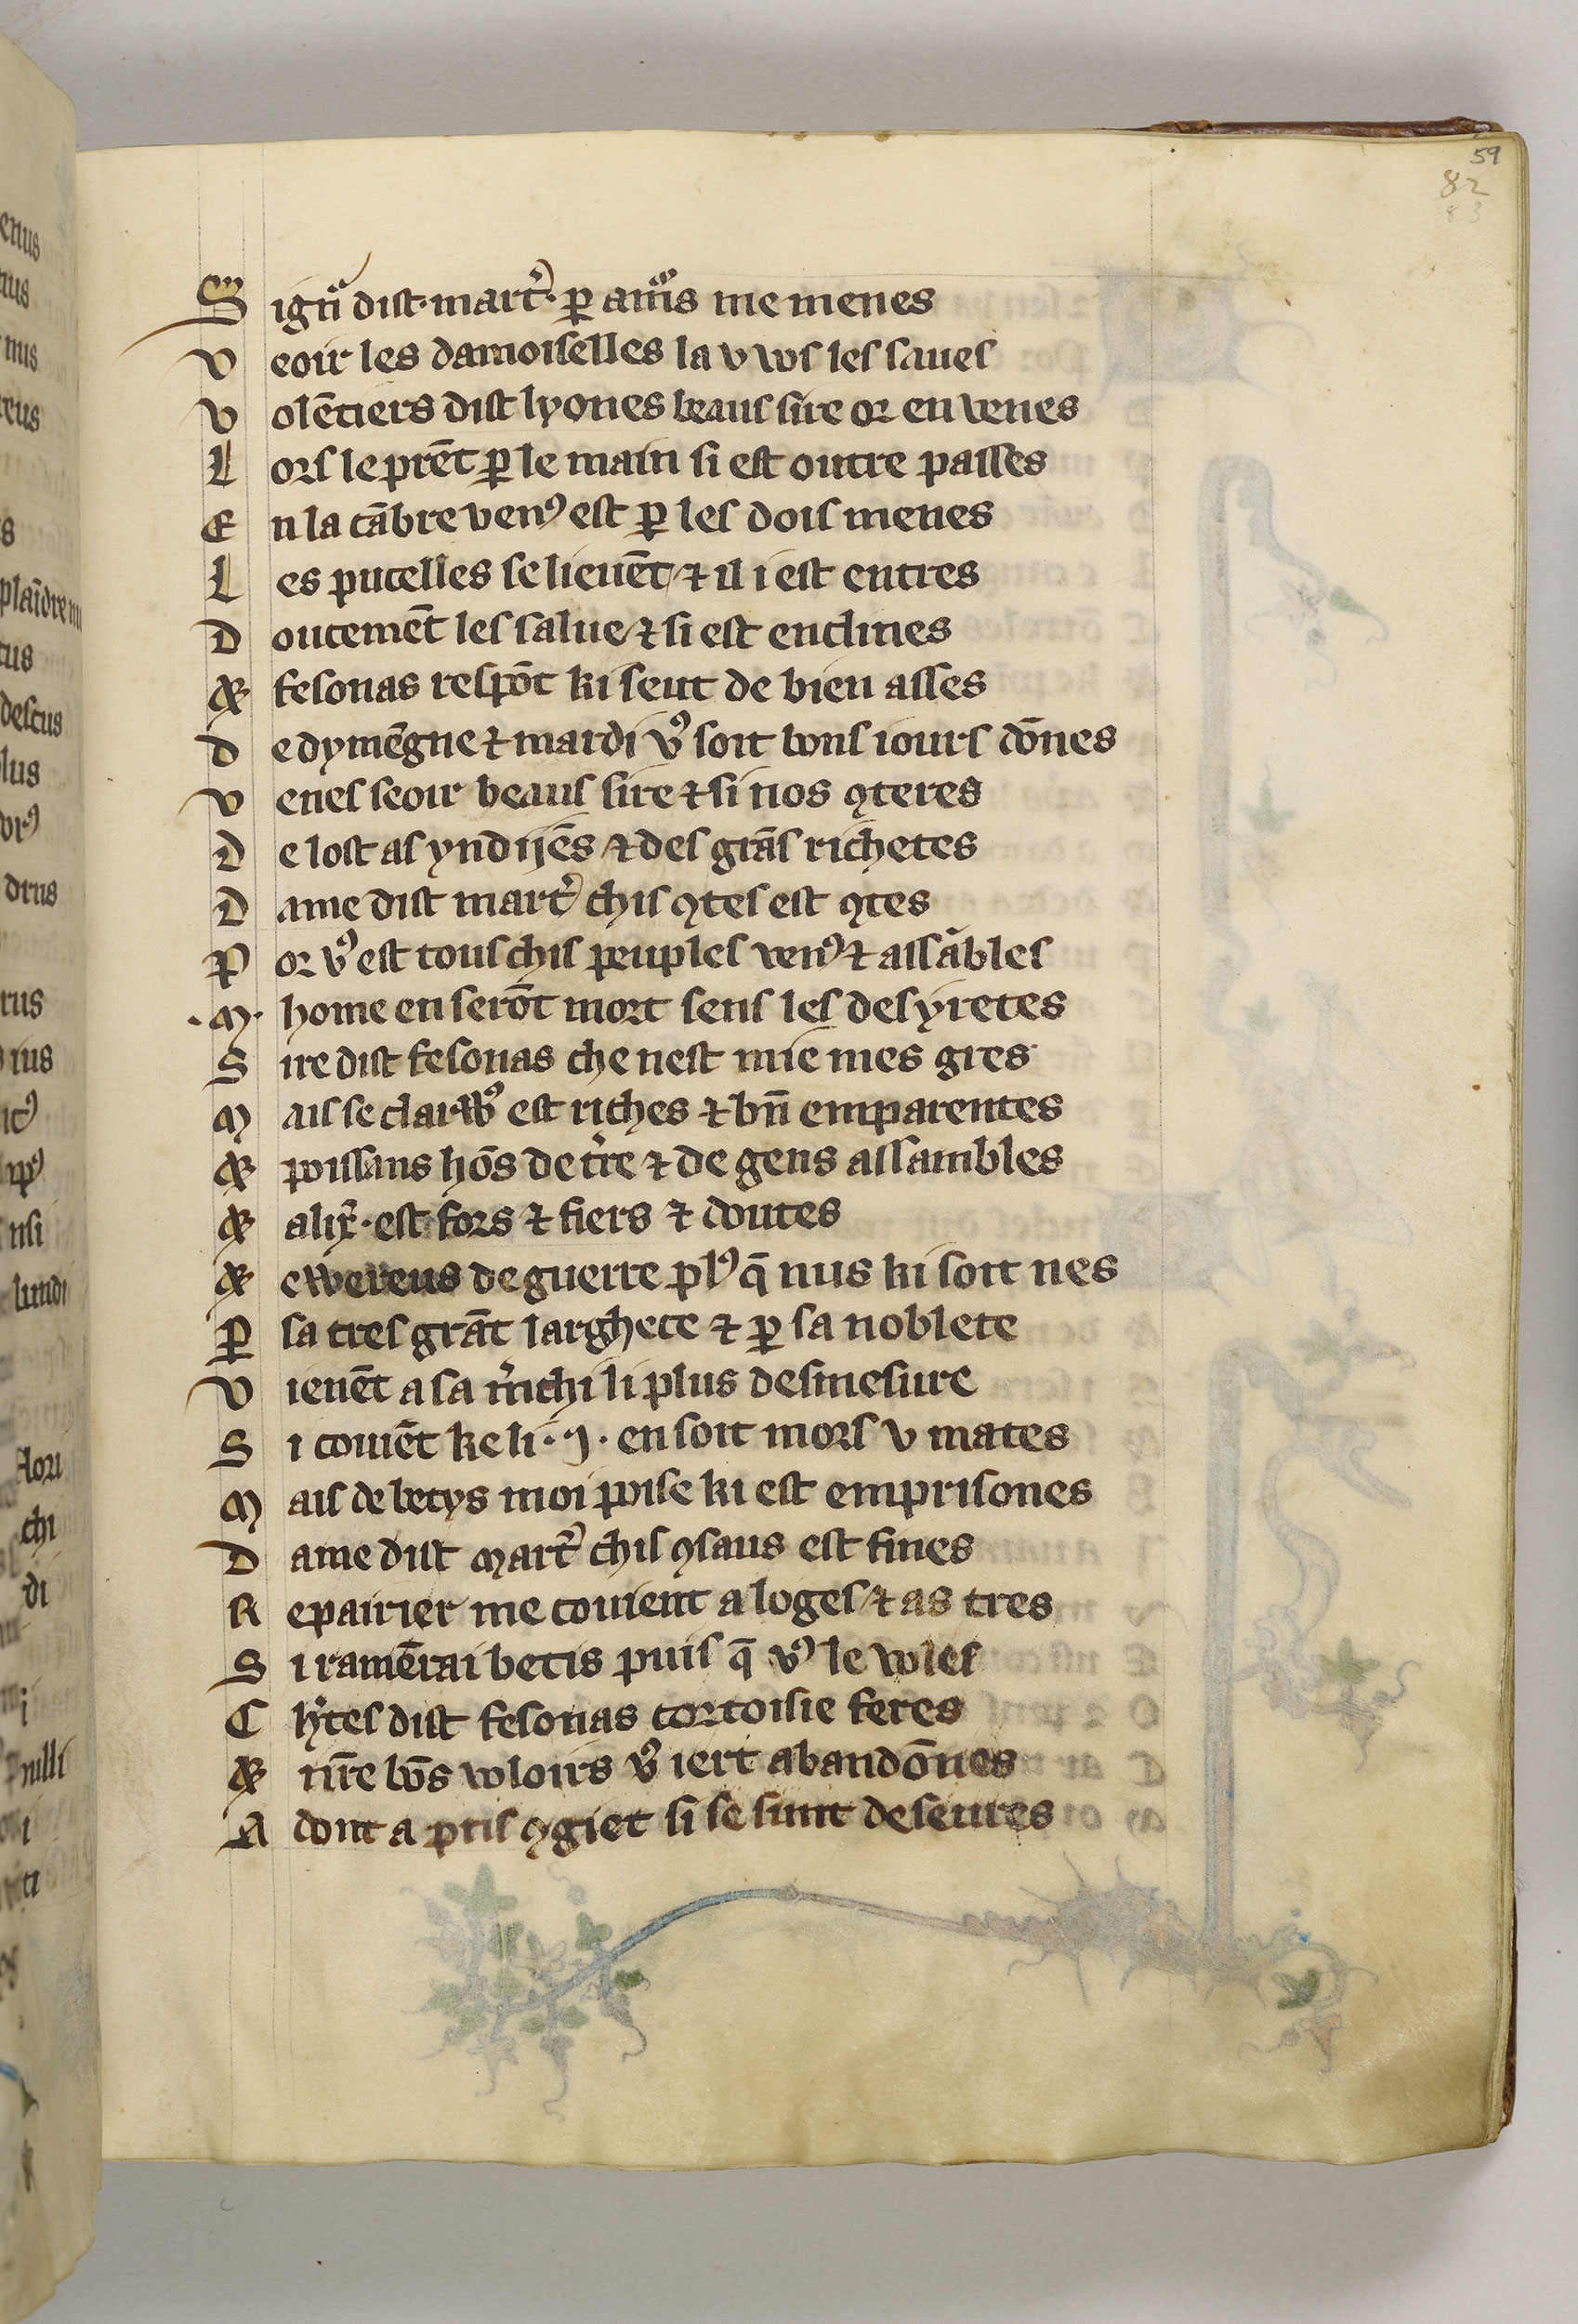 59
82
83
S ign͛ dist · mart͛ · ꝑ am͛s me menes
V eoir les damoiselles la v vos les saues
V olētiers dist lyones beaus sire or en venes
L ors le prēt ꝑ le main si est outre passes
E n la cābre venꝰ est ꝑ les dois menes
L es pucelles se lieuēt ⁊ il i est entres
D oucemēt les salue ⁊ si est enclines
Et fesonas respōt ki seut de bien asses
D e dymēgne ⁊ mardi vꝰ soit bons iours dōnes
V enes seoir beaus sire ⁊ si nos ꝯteres
D e lost as yndijēs ⁊ des grās richetes
D ame dist mart͛ chis ꝯtes est ꝯtes
P or vꝰ est tous chis peuples venꝰ ⁊ assābles
· M · home en serōt mort sens les desyretes
S ire dist fesonas che nest mie mes gres
M ais se clarꝰ est riches ⁊ bn̄ emparentes
Et poissans hōs de t͛re ⁊ de gens assambles
Et alix͛ · est fors ⁊ fiers ⁊ doutes
Et ewereus de guerre plꝰ q̄ nus ki soit nes
Ꝑ sa tres grāt larghece ⁊ ꝑ sa noblete
V ienēt a sa m͛chi li plus desmesure
S i couiēt ke li · j · en soit mors v mates
M ais de betys moi poise ki est emprisones
D ame dist Mart͛ chis ꝯsaus est fines
R epairier me couient a loges ⁊ as tres
S i ramērai betis puis q̄ vꝰ le voles
C h͛tes dist fesonas cortoisie feres
Et nr̄e bōs voloirs vꝰ iert abandōnes
A dont a pris ꝯgiet si se sunt deseures